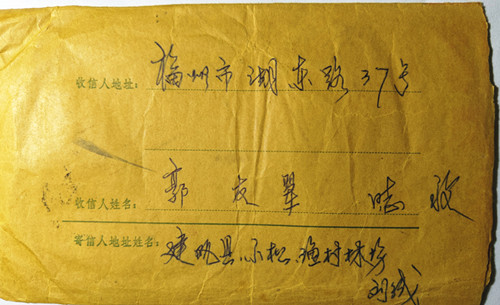 收信人地址: 福州市湖东路37号
收信人姓名: 郭友翠 收
寄信人地址姓名: 建瓯县小松渔村林场